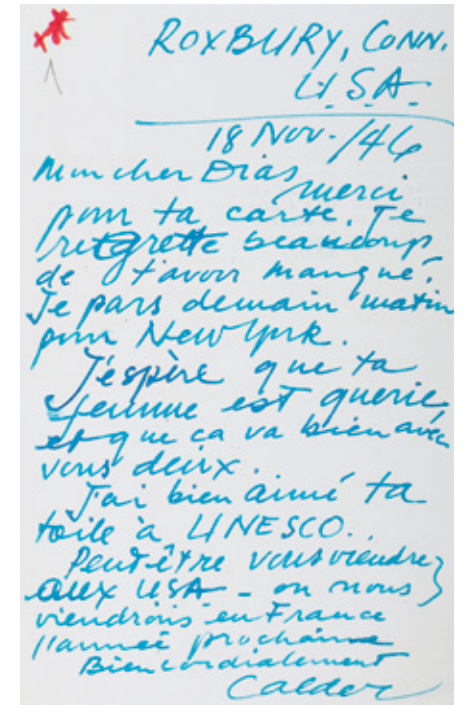 ROXBURY, CONN.
U.S.A.
18 Nov. /46
Mon cher Dias
merci
pour ta carte. Je
regrette beaucoup
de t'avoir manqué.
Je pars demain matin
pour New York.
J'espère que ta
femme est guerie
et que ça va bien avec
vous deux.
J'ai bien aimé ta
toile à UNESCO.
Peut-être vous viendrez
aux USA - ou nous
viendrons en France
l'année prochaine
Bien cordialement
Calder